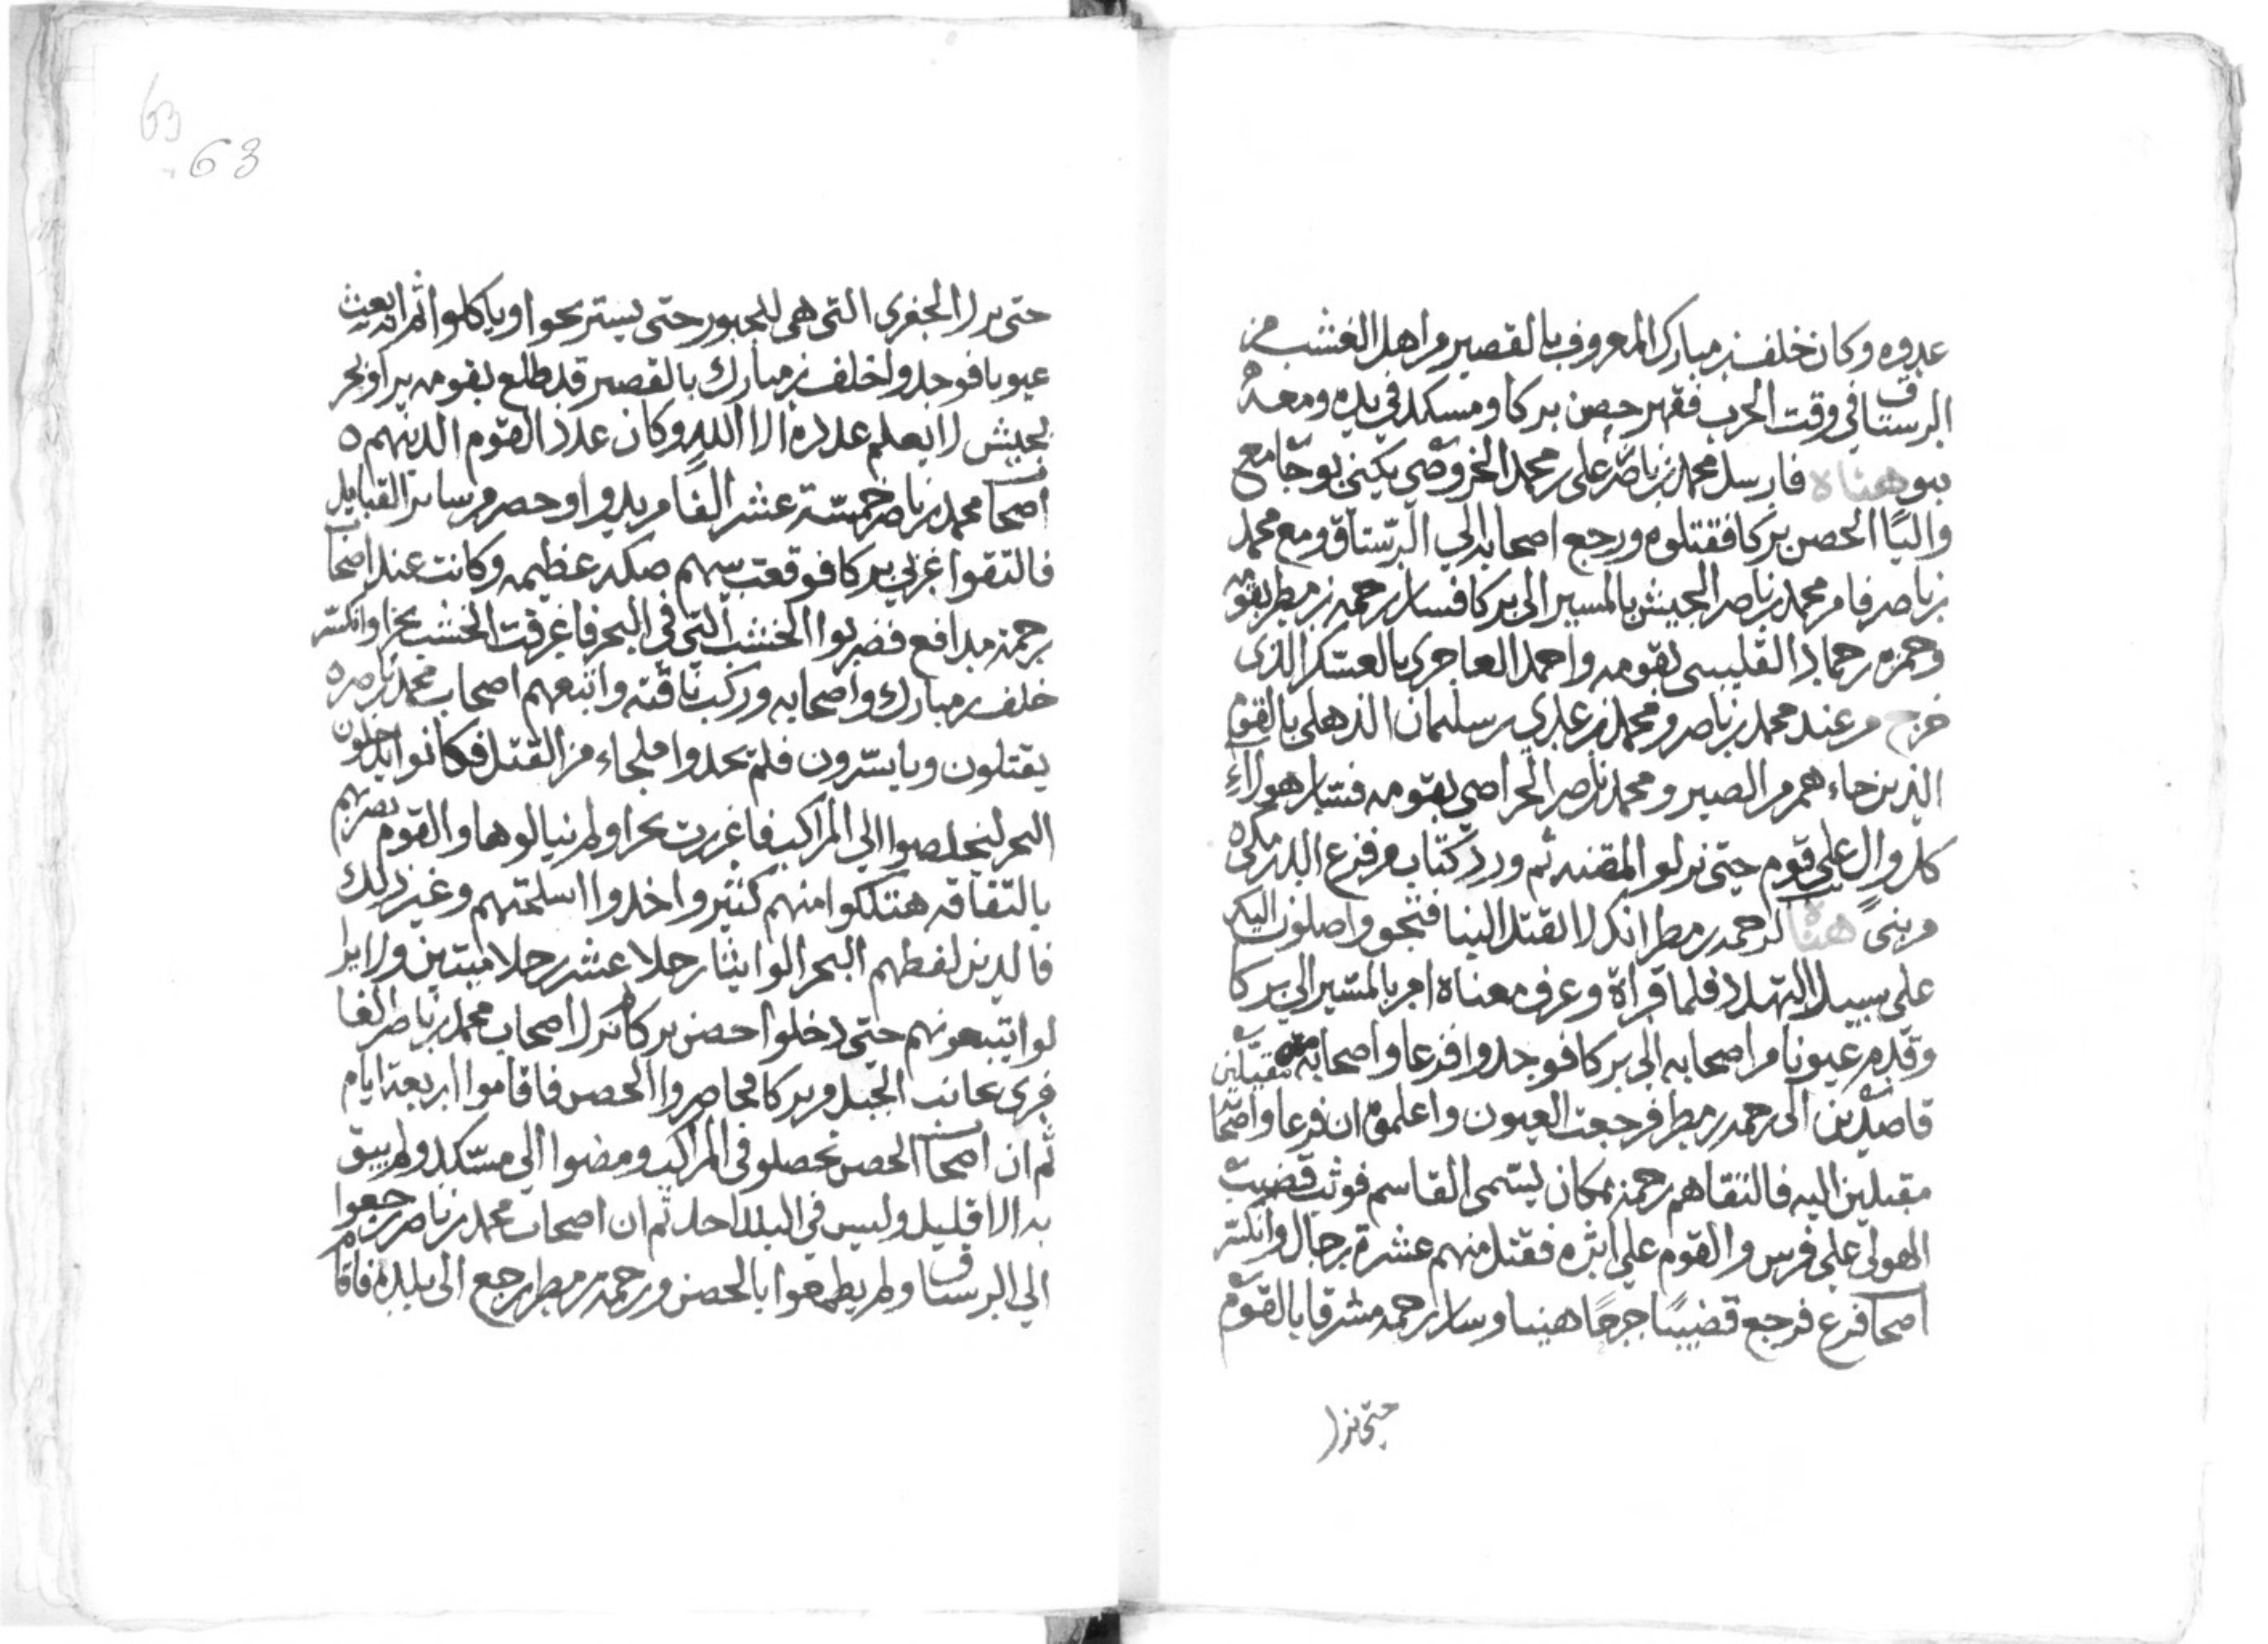 عدوه وكان خلف بن مبارك المعروف بالقصير من اهل الغشب من
الرستاق في وقت الحرب فقهر حصن بركا ومسكد في يده ومعه
بنو هناة فارسل محمد بن ناصر علي بن محمد الخروصي يكنى بوجامع
واليًا الحصن بركا فقتلوه ورجع اصحابه الي الرستاق ومع محمد
بن ناصر فامر محمد بن ناصر الجيش بالمسير الى بركا فسار رحمه بن مطر بقومه
وحمزه بن حماد القليبسى بقومه واحمد العاجرى بالعسكر الذى
خرج من عند محمد بن ناصر ومحمد بن عدي بن سليمان الذهلى بالقوم
الذين جاء هم من الصير ومحمد بن ناصر الحراصي بقومه فسار هولاءِ
كل وال على قوم حتى نزلو المقنه ثم ورد كتاب من فزع الدرمكى
من بنى هناة لرحمه بن مطر انك لا تقبل الينا فنحن واصلون اليك
على سبيل التهدد فلما قراة وعرف معناة امر بالمسير الي بركا
وقدم عيونا من اصحابه الي بركا فوجدوا فزعا واصحابه مقبلين
قاصدين الى رحمه بن مطر فرجعت العيون واعلموه ان فزعا واصحا
مقبلين اليه فالتقاهم رحمة بمكان يسمى القاسم فوثب قضيب
الهولى على فرس والقوم علي اثره فقتل منهم عشرة رجال وانكسر
اصحا فزع فرجع قضيبًا جرحًا هينا وسار رحمه مشرقا بالقوم
حتى نزل
63
63
حتى نزل الجفرى التي هى للجبور حتى يستريحوا وياكلوا ثم انه بعث
عيونا فوجدوا خلف بن مبارك بالقصير قد طلع بقومه برا وبحر
بجيش لا يعلم عدده الا الله وكان عدد القوم الذينهم ٥
اصحا محمد بن ناصر خمسة عشر الفًا من بدو وحضر من ساير القبايل
فالتقوا غربي بركا فوقعت بينهم صكه عظيمه وكانت عند اصحا
رحمة مدافع فضربوا الخشب التي في البحر فاغرقت الخشب بحرا وانكسر
خلف بن مبارك واصحابه وركب ناقته واتبعهم اصحاب محمد بن ناصر ه
يقتلون ويا سرون فلم يجدوا ملجاء من القتل فكانوا يدخلون
البحر ليتخلصوا الي المراكب فاغزرت بحرا ولم ينالوها والقوم تضربهم
بالتفاقه هتككوا منهم كثير واخذوا اسلحتهم وغير ذلك
فالذين لفظهم البحر الوا يثنار جلا عشر رجلا ميتين ولا يزا
لوا يتبعونهم حتى دخلوا حصن بركا ثم نزل اصحاب محمد بن ناصر الغا
فرى بجانب الجبل من بركا فحاصروا الحصن فاقاموا اربعة ايام
ثم ان اصحا الحصن تحصلو في المراكب ومضوا الي مسكد ولم يبق
به الا قليل وليس في البلد احد ثم ان اصحاب محمد بن ناصر رجعوا
الي الرستاق ولم يطمعوا بالحصن ورحمة بن مطر رجع الى بلده فاقام